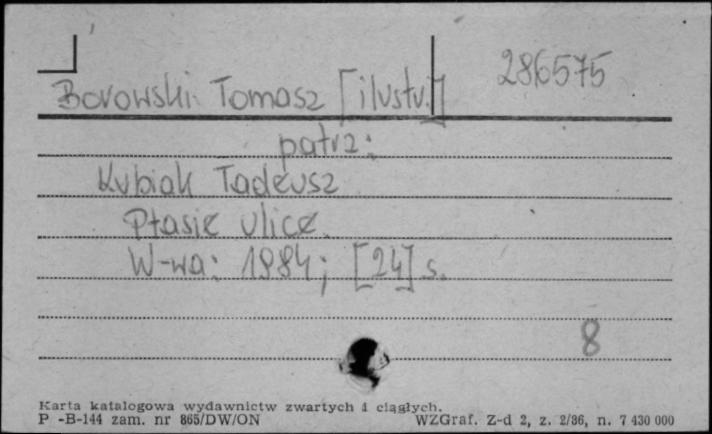 Borowski Tomasz [ilustr.] 286575
patrz:
Kubiak Tadeusz
Ptasie ulice.
W-wa: 1984; [24] s.
8
Karta katalogowa wydawnictw zwartych i ciągłych.
P -B-144 zam. nr 865/DW/ON WZGraf. Z-d 2, z. 2/86, n. 7 430 000